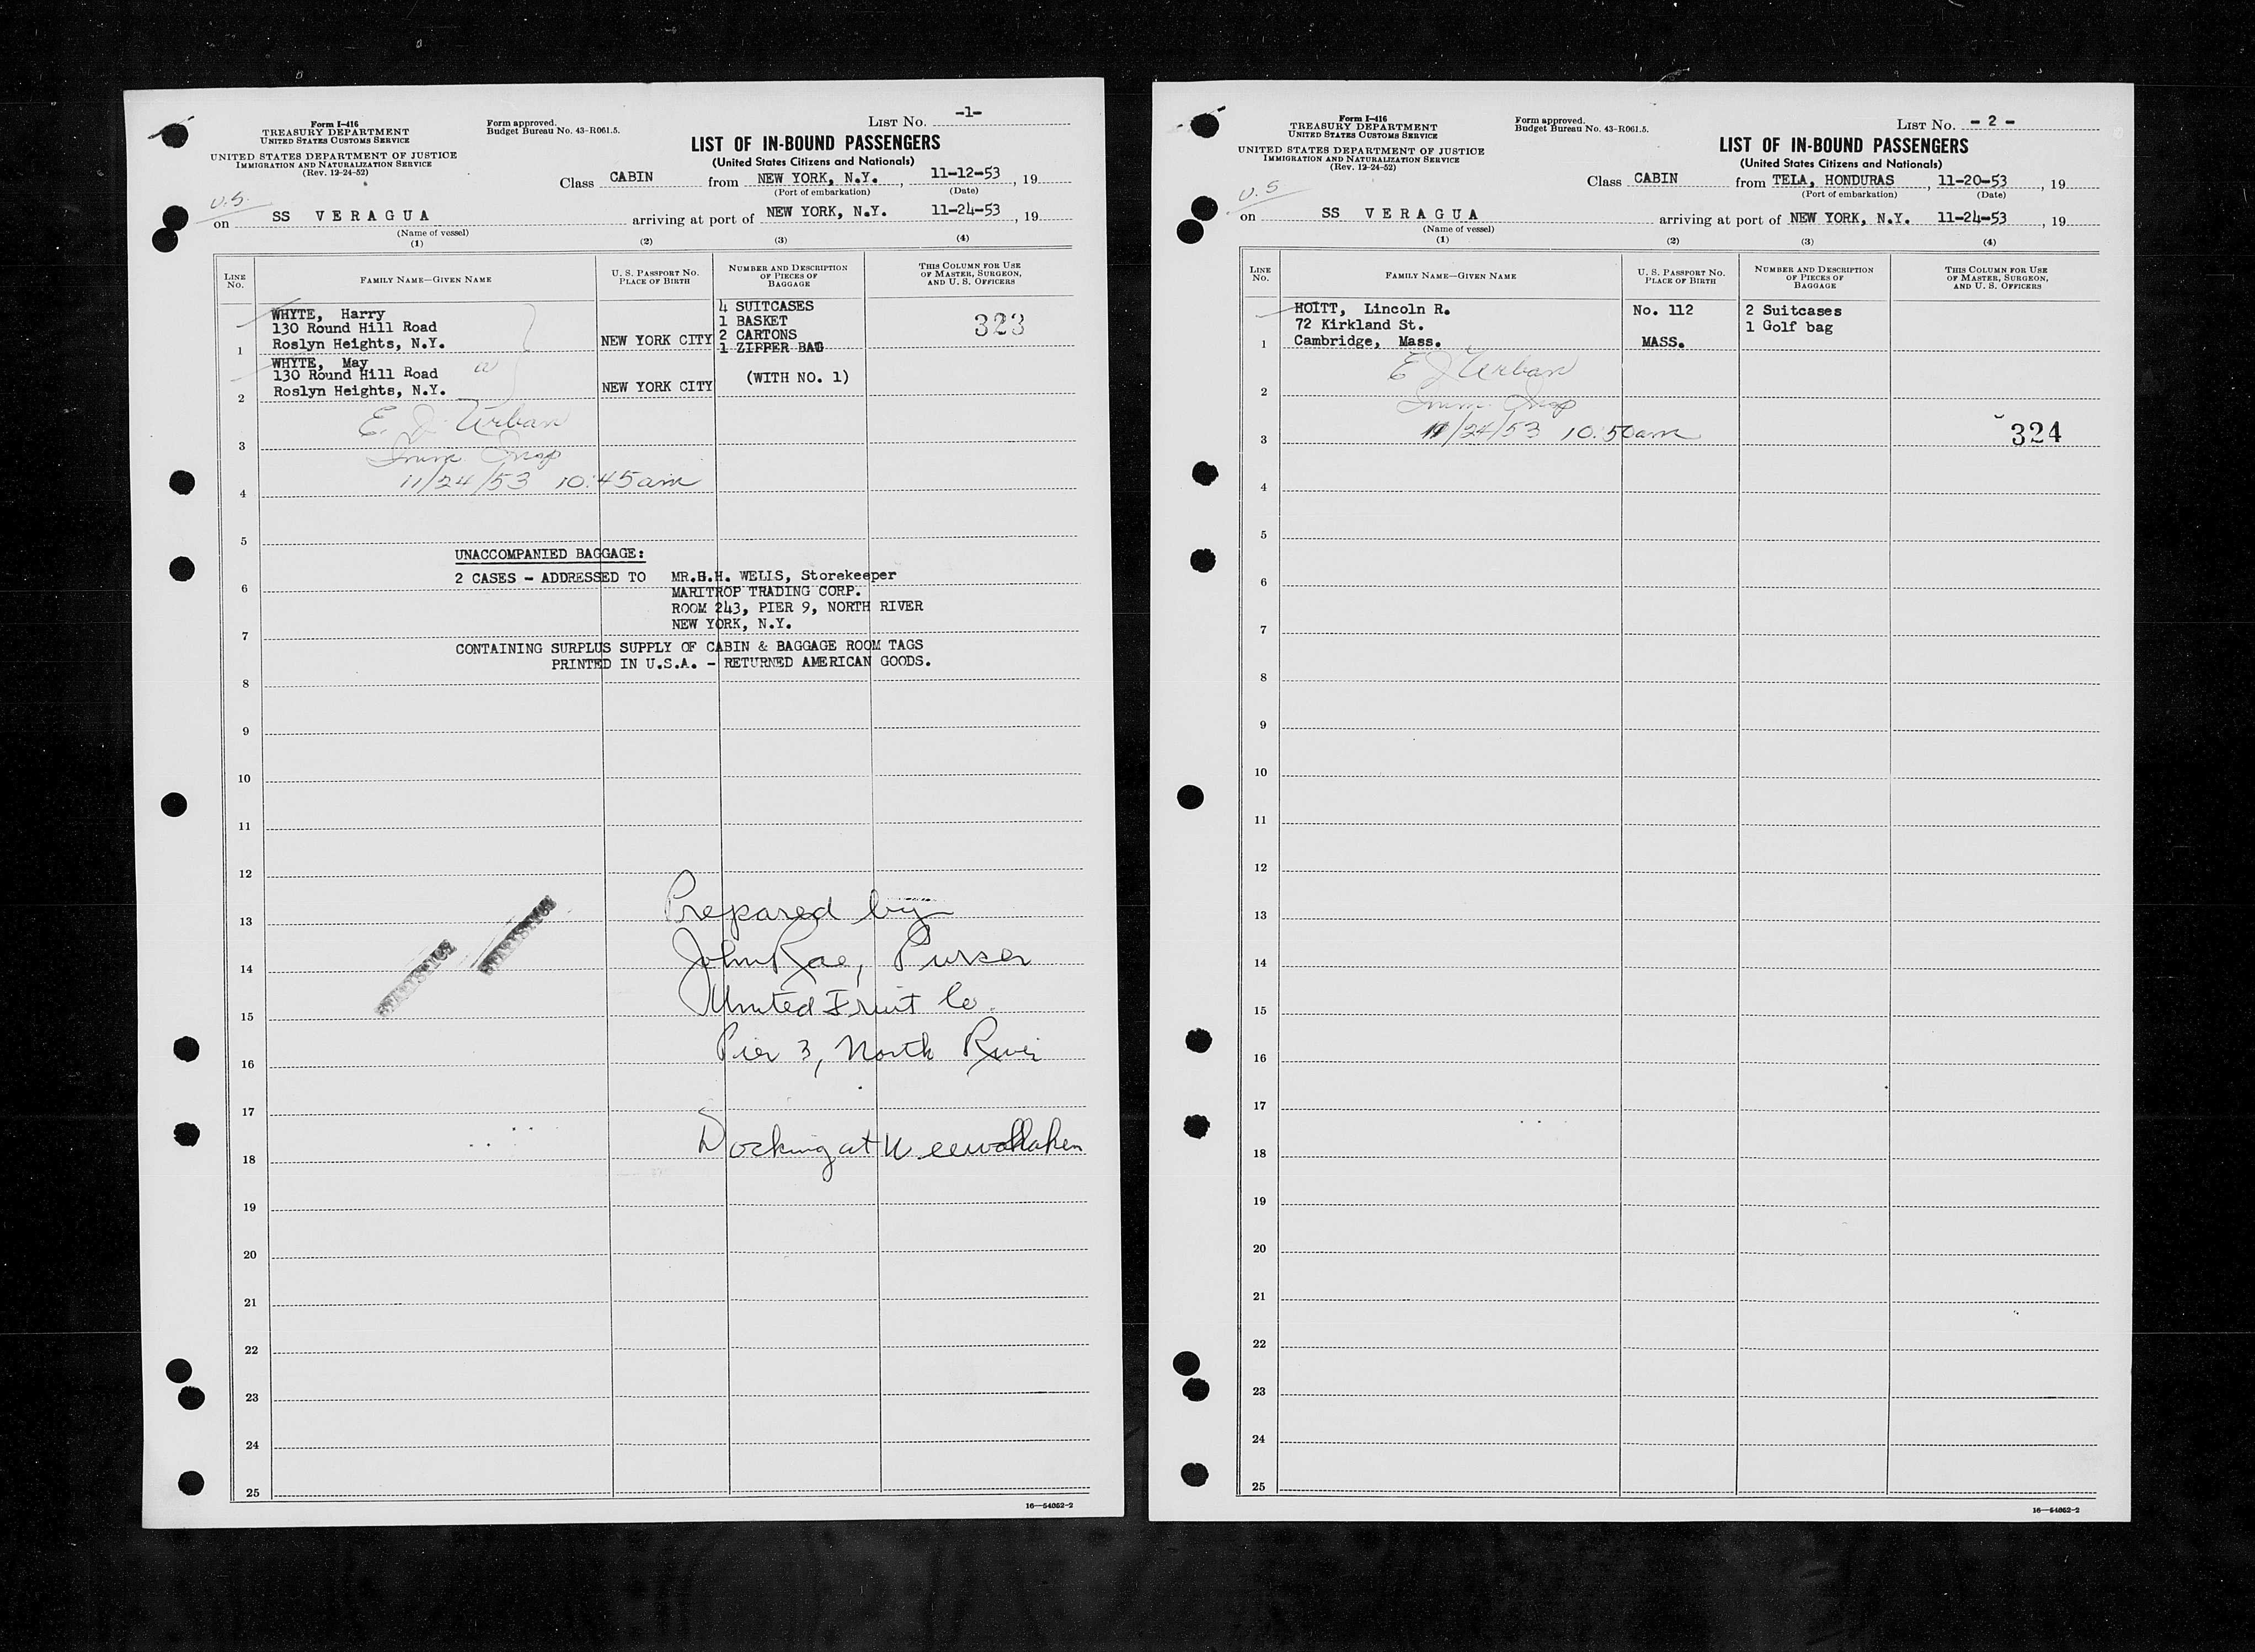 Form I-416
TREASURY DEPARTMENT
UNITED STATES CUSTOMS SERVICE
UNITED STATES DEPARTMENT OF JUSTICE
IMMIGRATION AND NATURALIZATION SERVICE
(Rev. 12-24-52)
Form approved.
Budget Bureau No. 43-R061.5.
LIST NO. -1-
LIST OF IN-BOUND PASSENGERS
(United States Citizens and Nationals)
Class CABIN from NEW YORK, N.Y., 11-12-53, 19
(Port of embarkation) (Date)
U.S.
on SS VERAGUA arriving at port of NEW YORK, N.Y. 11-24-53, 19
(Name of vessel)
(1) (2) (3) (4)
LINE NO. FAMILY NAME—GIVEN NAME U. S. PASSPORT NO. PLACE OF BIRTH NUMBER AND DESCRIPTION OF PIECES OF BAGGAGE THIS COLUMN FOR USE OF MASTER, SURGEON, AND U. S. OFFICERS
4 SUITCASES
WHYTE, Harry 1 BASKET 323
130 Round Hill Road 2 CARTONS
1 Roslyn Heights, N.Y. NEW YORK CITY 1 ZIPPER BAG
WHYTE, May
130 Round Hill Road (WITH NO. 1)
2 Roslyn Heights, N.Y. NEW YORK CITY
E. J. Urban
3 Imm. Insp
4 11/24/53 10:45 am
5
UNACCOMPANIED BAGGAGE:
6 2 CASES - ADDRESSED TO MR.H.H. WELLS, Storekeeper
MARITROP TRADING CORP.
ROOM 243, PIER 9, NORTH RIVER
7 NEW YORK, N.Y.
CONTAINING SURPLUS SUPPLY OF CABIN & BAGGAGE ROOM TAGS
PRINTED IN U.S.A. - RETURNED AMERICAN GOODS.
8
9
10
11
12
13 Prepared by
14 John Rae, Purser
15 United Fruit Co.
16 Pier 3, North River
17
18 Docking at Weewahaken
19
20
21
22
23
24
25
16—54052-2
Form I-416
TREASURY DEPARTMENT
UNITED STATES CUSTOMS SERVICE
UNITED STATES DEPARTMENT OF JUSTICE
IMMIGRATION AND NATURALIZATION SERVICE
(Rev. 12-24-52)
Form approved.
Budget Bureau No. 43-R061.5.
LIST NO. - 2 -
LIST OF IN-BOUND PASSENGERS
(United States Citizens and Nationals)
Class CABIN from TELA, HONDURAS, 11-20-53, 19
(Port of embarkation) (Date)
U.S
on SS VERAGUA arriving at port of NEW YORK, N.Y. 11-24-53, 19
(Name of vessel)
(1) (2) (3) (4)
LINE NO. FAMILY NAME—GIVEN NAME U. S. PASSPORT NO. PLACE OF BIRTH NUMBER AND DESCRIPTION OF PIECES OF BAGGAGE THIS COLUMN FOR USE OF MASTER, SURGEON, AND U. S. OFFICERS
HOITT, Lincoln R. No. 112 2 Suitcases
72 Kirkland St. 1 Golf bag
1 Cambridge, Mass. MASS.
E J Urban
2 Imm. Insp
3 11/24/53 10:50am 324
4
5
6
7
8
9
10
11
12
13
14
15
16
17
18
19
20
21
22
23
24
25
16—54052-2